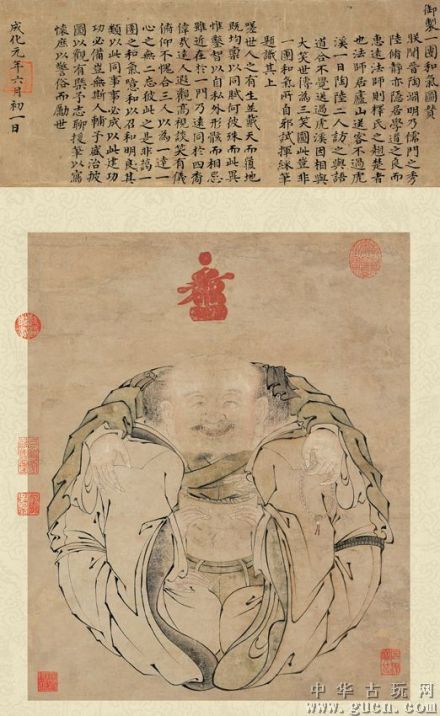 御製一團和氣圖贊
朕聞晉陶淵明乃儒門之秀
陸脩靜亦隱居學道之良而
惠遠法師則釋氏之翹楚者
也法師居廬山送客不過虎
溪一日陶陸二人訪之與語
道合不覺送過虎溪因相與
大笑世傳為三笑圖此豈非
一團和氣所自邪試揮綵筆
題識其上
嗟世人之有生並戴天而履地
既均稟以同賦何彼殊而此異
惟鑿智以自私外形骸而相忌
雖近在於一門乃遠同於四裔
偉哉達人遐觀高視談笑有儀
俯仰不愧合三人以為一達一
心之無二忘彼此之是非藹一
團之和氣噫和以召和明良其
類以此同事事必成以此建功
功必備豈無斯人輔予盛治披
圖以觀有槩予志聊援筆以寫
懷庶以警俗而勵世
成化元年六月初一日
中华古玩网
www.gucn.com